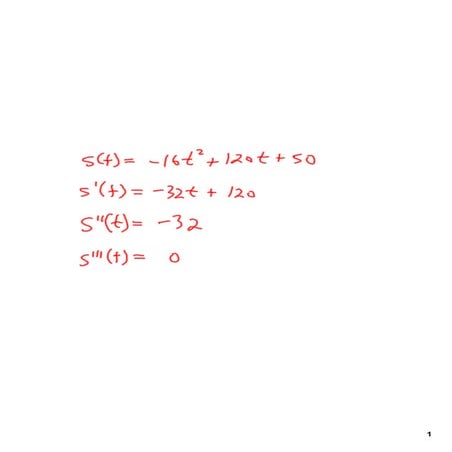 s(t) = -16t² + 120t + 50
s'(t) = -32t + 120
s''(t) = -32
s'''(t) = 0
1